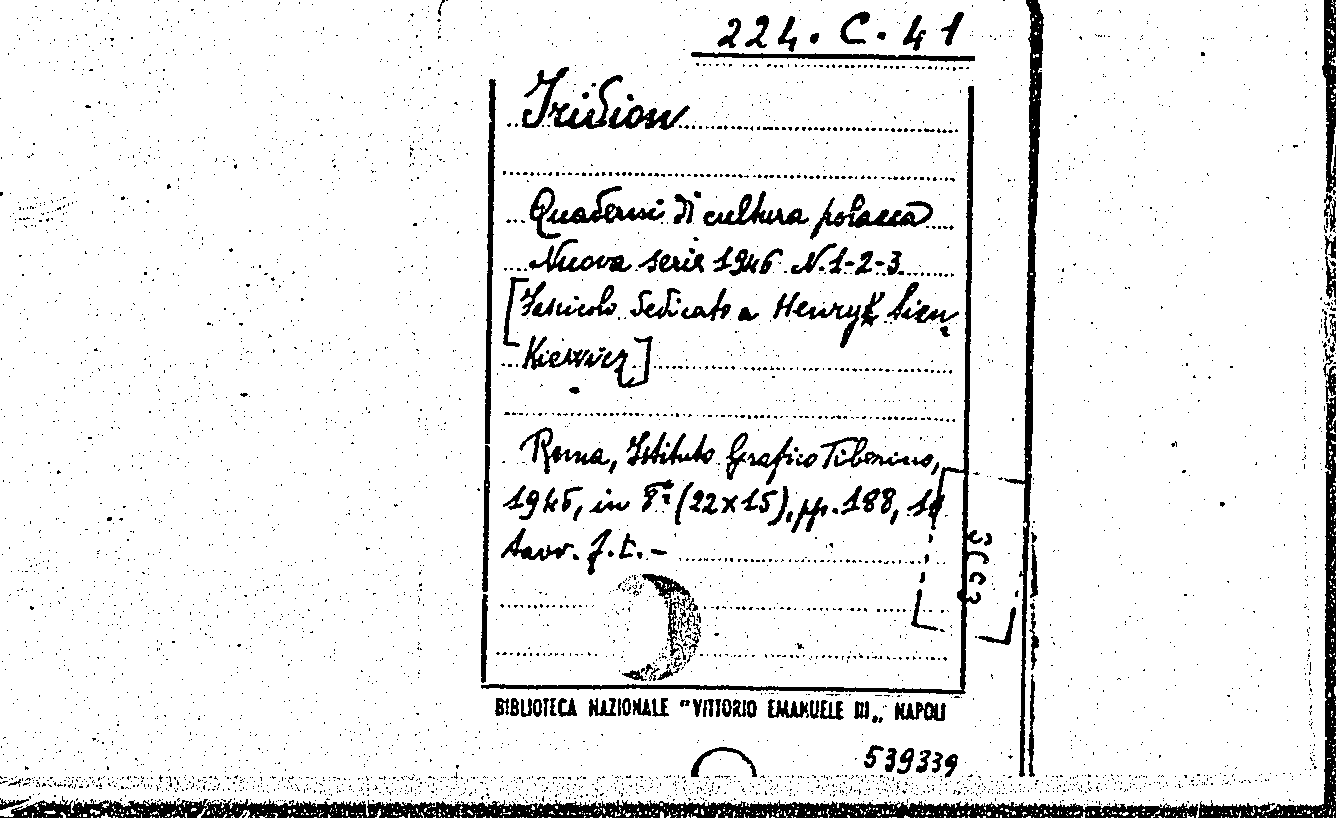 224. C. 41
Iridion
Quaderni di cultura polacca
Nuova serie 1946 N. 1-2-3.
[Fascicolo dedicato a Henryk Sien
Kiewicz]
Roma, Istituto Grafico Tiberino,
1946, in 8° (22x15), pp. 188,
tavv. f. t. -
BIBLIOTECA NAZIONALE "VITTORIO EMANUELE III„ NAPOLI
539339